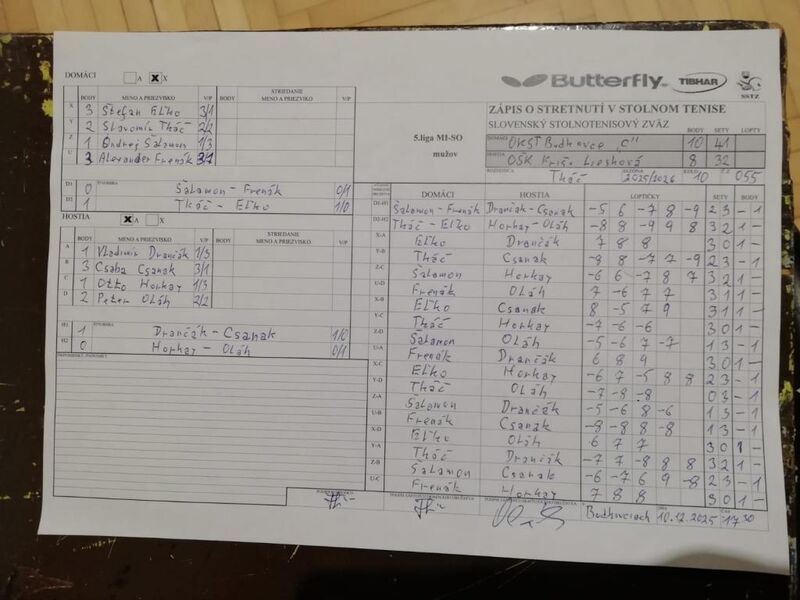 DOMÁCI A X
BODY MENO A PRIEZVISKO V/P BODY STRIEDANIE MENO A PRIEZVISKO V/P
X 3 Štefan Eľko 3/1
Y 2 Slavomír Tkáč 2/2
Z 1 Ondrej Šalamon 1/3
U 3 Alexander Frenák 3/1
D1 0 ŠTVORHRA Šalamon - Frenák 0/1
D2 1 Tkáč - Eľko 1/0
HOSTIA A X
BODY MENO A PRIEZVISKO V/P BODY STRIEDANIE MENO A PRIEZVISKO V/P
A 1 Vladimír Drančák 1/3
B 3 Csaba Csanak 3/1
C 1 Otto Horkay 1/3
D 2 Peter Oláh 2/2
H1 1 ŠTVORHRA Drančák - Csanak 1/0
H2 0 Horkay - Oláh 0/1
Butterfly TIBHAR SSTZ
5.liga MI-SO mužov
ZÁPIS O STRETNUTÍ V STOLNOM TENISE
SLOVENSKÝ STOLNOTENISOVÝ ZVÄZ BODY SETY LOPTY
OKST Budkovce „C" 10 41
OŠK Križ. Liesková 8 32
Tkáč 2025/2026 10 055
DOMÁCI HOSTIA LOPTIČKY SETY BODY
D1-H1 Šalamon - Frenák Drančák - Csanak -5 6 -7 8 -9 2 3 - 1
D2-H2 Tkáč - Eľko Horkay - Oláh -8 8 -9 9 8 3 2 1 -
X-A Eľko Drančák 7 8 8 3 0 1 -
Y-B Tkáč Csanak -8 8 -7 7 -9 2 3 - 1
Z-C Šalamon Horkay -6 6 -7 8 7 3 2 1 -
U-D Frenák Oláh 7 -6 7 7 3 1 1 -
X-B Eľko Csanak 8 -5 7 9 3 1 1 -
Y-C Tkáč Horkay -7 -6 -6 3 0 1 -
Z-D Šalamon Oláh -5 -6 7 -7 1 3 - 1
U-A Frenák Drančák 6 8 9 3 0 1 -
X-C Eľko Horkay -6 7 -5 8 8 2 3 - 1
Y-D Tkáč Oláh -7 -8 -8 0 3 - 1
Z-A Šalamon Drančák -5 -6 8 -6 1 3 - 1
U-B Frenák Csanak -8 -8 8 -8 1 3 - 1
X-D Eľko Oláh 6 7 7 3 0 1 -
Y-A Tkáč Drančák -7 7 -8 8 8 3 2 1 -
Z-B Šalamon Csanak -6 -7 6 9 -8 2 3 - 1
U-C Frenák Horkay 7 8 8 3 0 1 -
10.12.2025 17 30